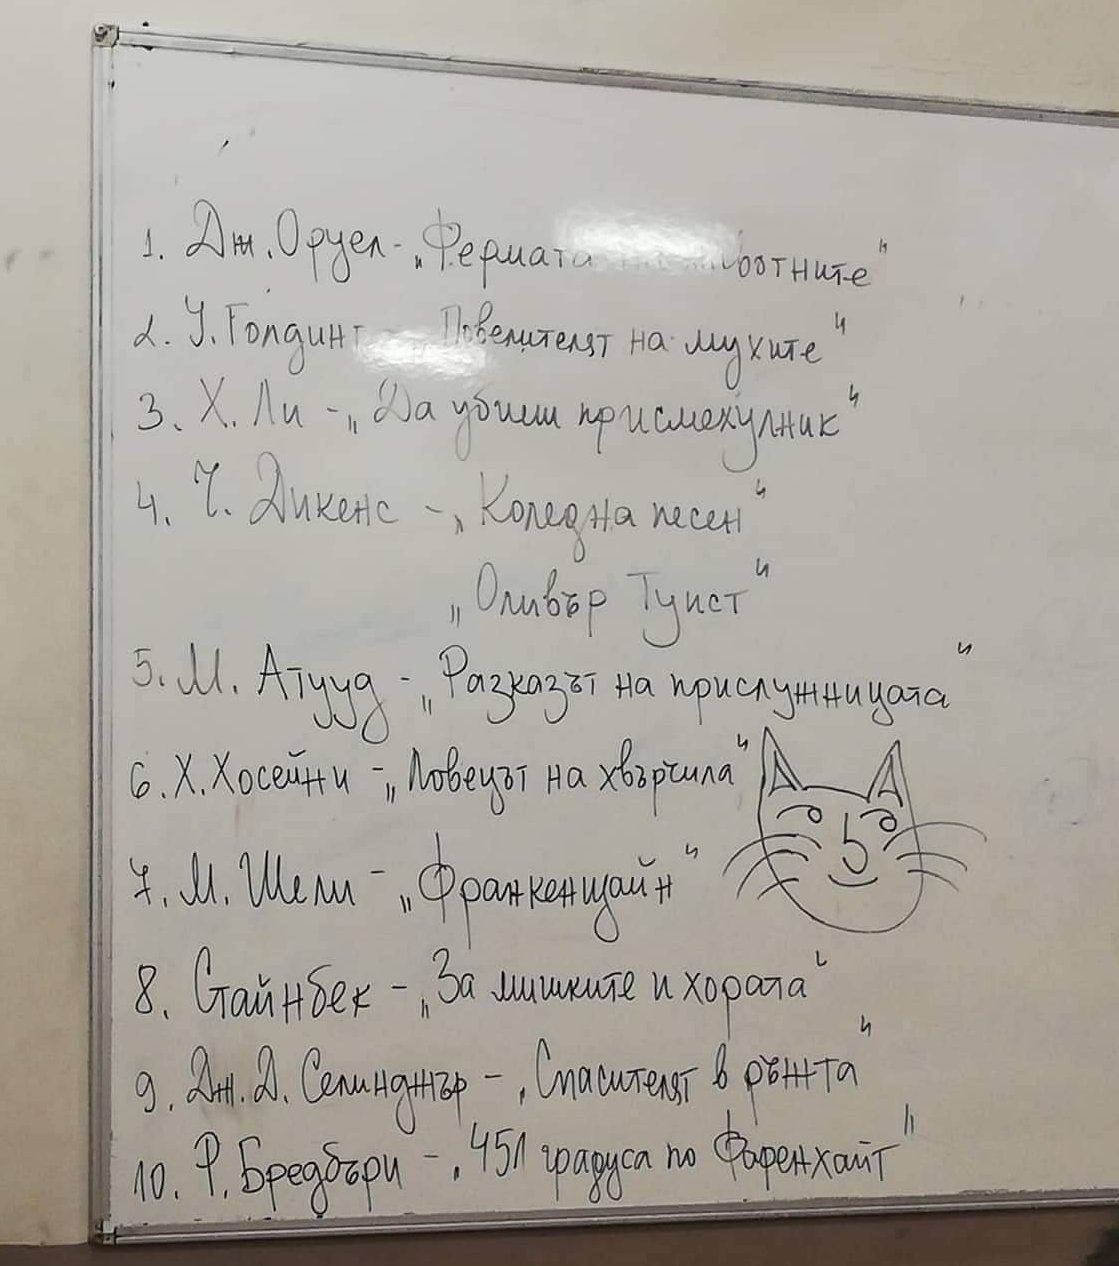 1. Дж. Оруел - „Фермата на животните"
2. У. Голдинг - „Повелителят на мухите"
3. Х. Ли - „Да убиеш присмехулник"
4. Ч. Дикенс - „Коледна песен"
„Оливър Туист"
5. М. Атууд - „Разказът на прислужницата"
6. Х. Хосейни - „Ловецът на хвърчила"
7. М. Шели - „Франкенщайн"
8. Стайнбек - „За мишките и хората"
9. Дж. Д. Селинджър - „Спасителят в ръжта"
10. Р. Бредбъри - „451 градуса по Фаренхайт"